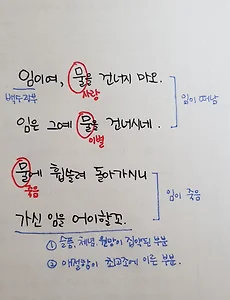 임이여, 물을 건너지 마오.
백수광부 사랑
임이 떠남
임은 그예 물을 건너시네.
이별
물에 휩쓸려 돌아가시니
죽음
임이 죽음
가신 임을 어이할꼬.
① 슬픔, 체념, 원망이 집약된 부분
② 애절함이 최고조에 이른 부분.